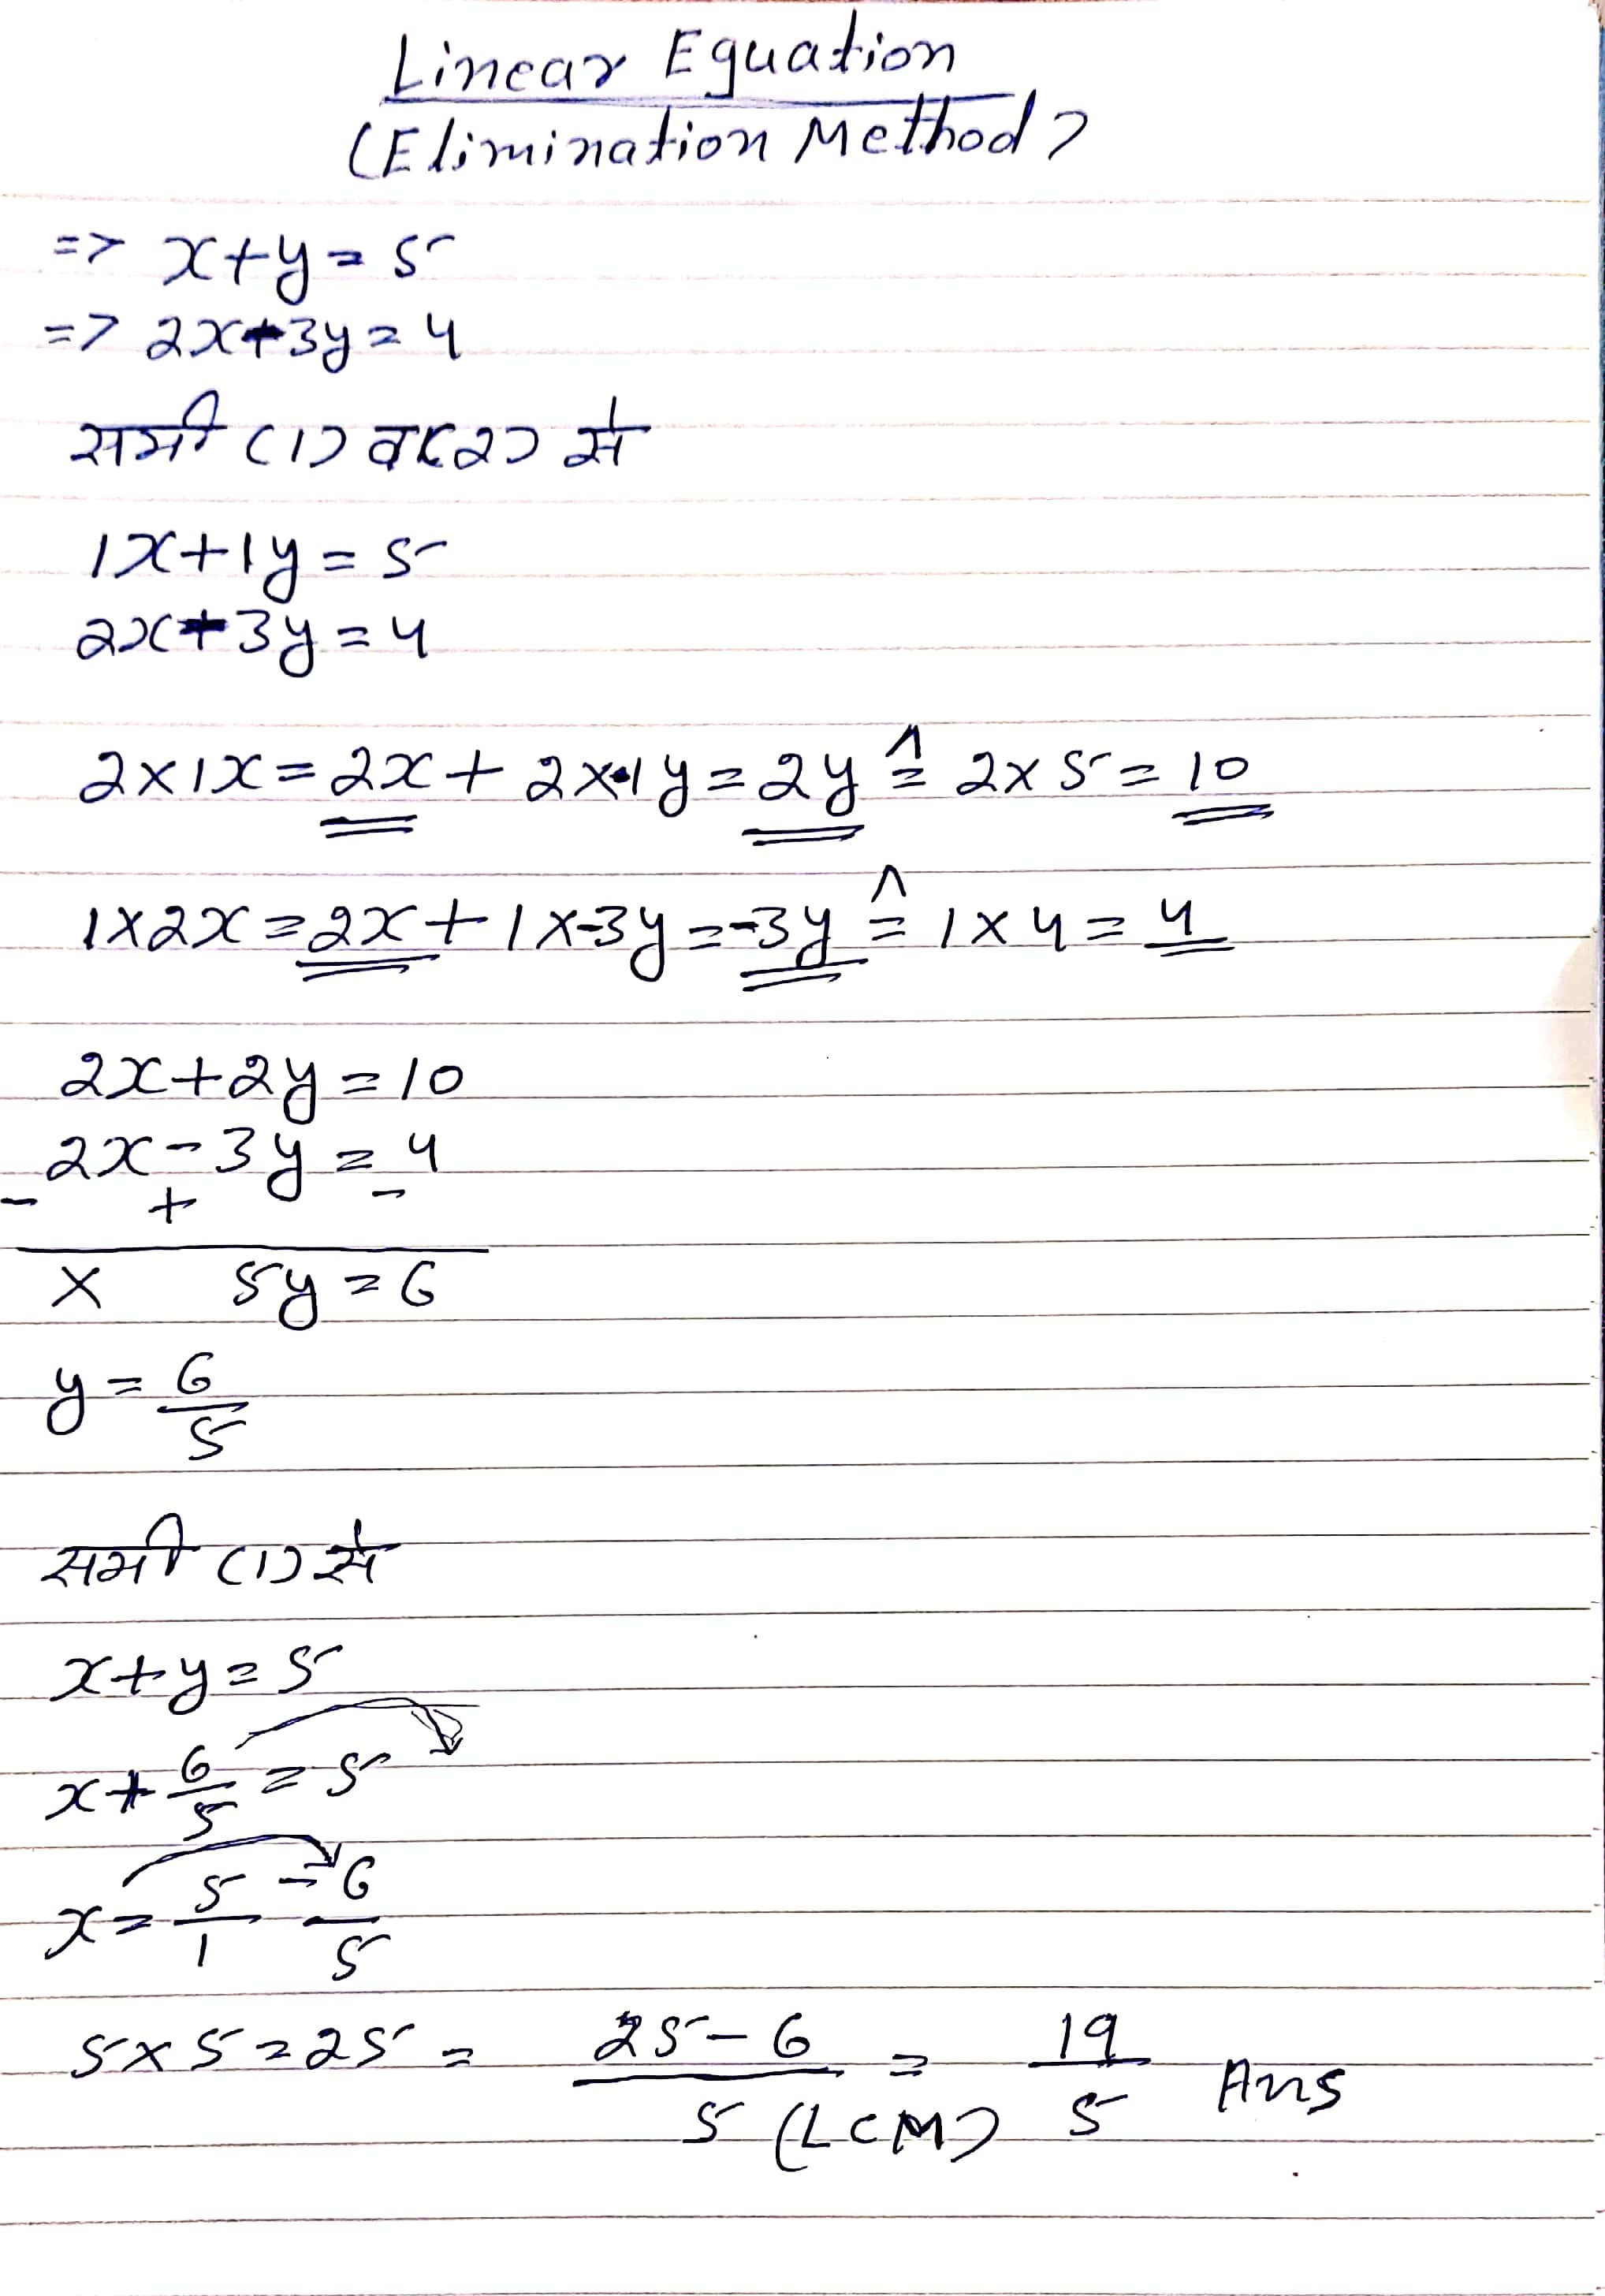 Linear Equation
(Elimination Method)
=> x+y=5
=> 2x+3y=4
समी (1) व (2) से
1x+1y=5
2x+3y=4
2×1x=2x+2×1y=2y ^= 2×5=10
1×2x=2x+1×-3y=-3y ^= 1×4=4
2x+2y=10
2x-3y=4
- + -
× 5y=6
y=6/5
समी (1) से
x+y=5
x+6/5=5
x=5/1 -6/5
5×5=25= 25-6/5 (LCM) = 19/5 Ans